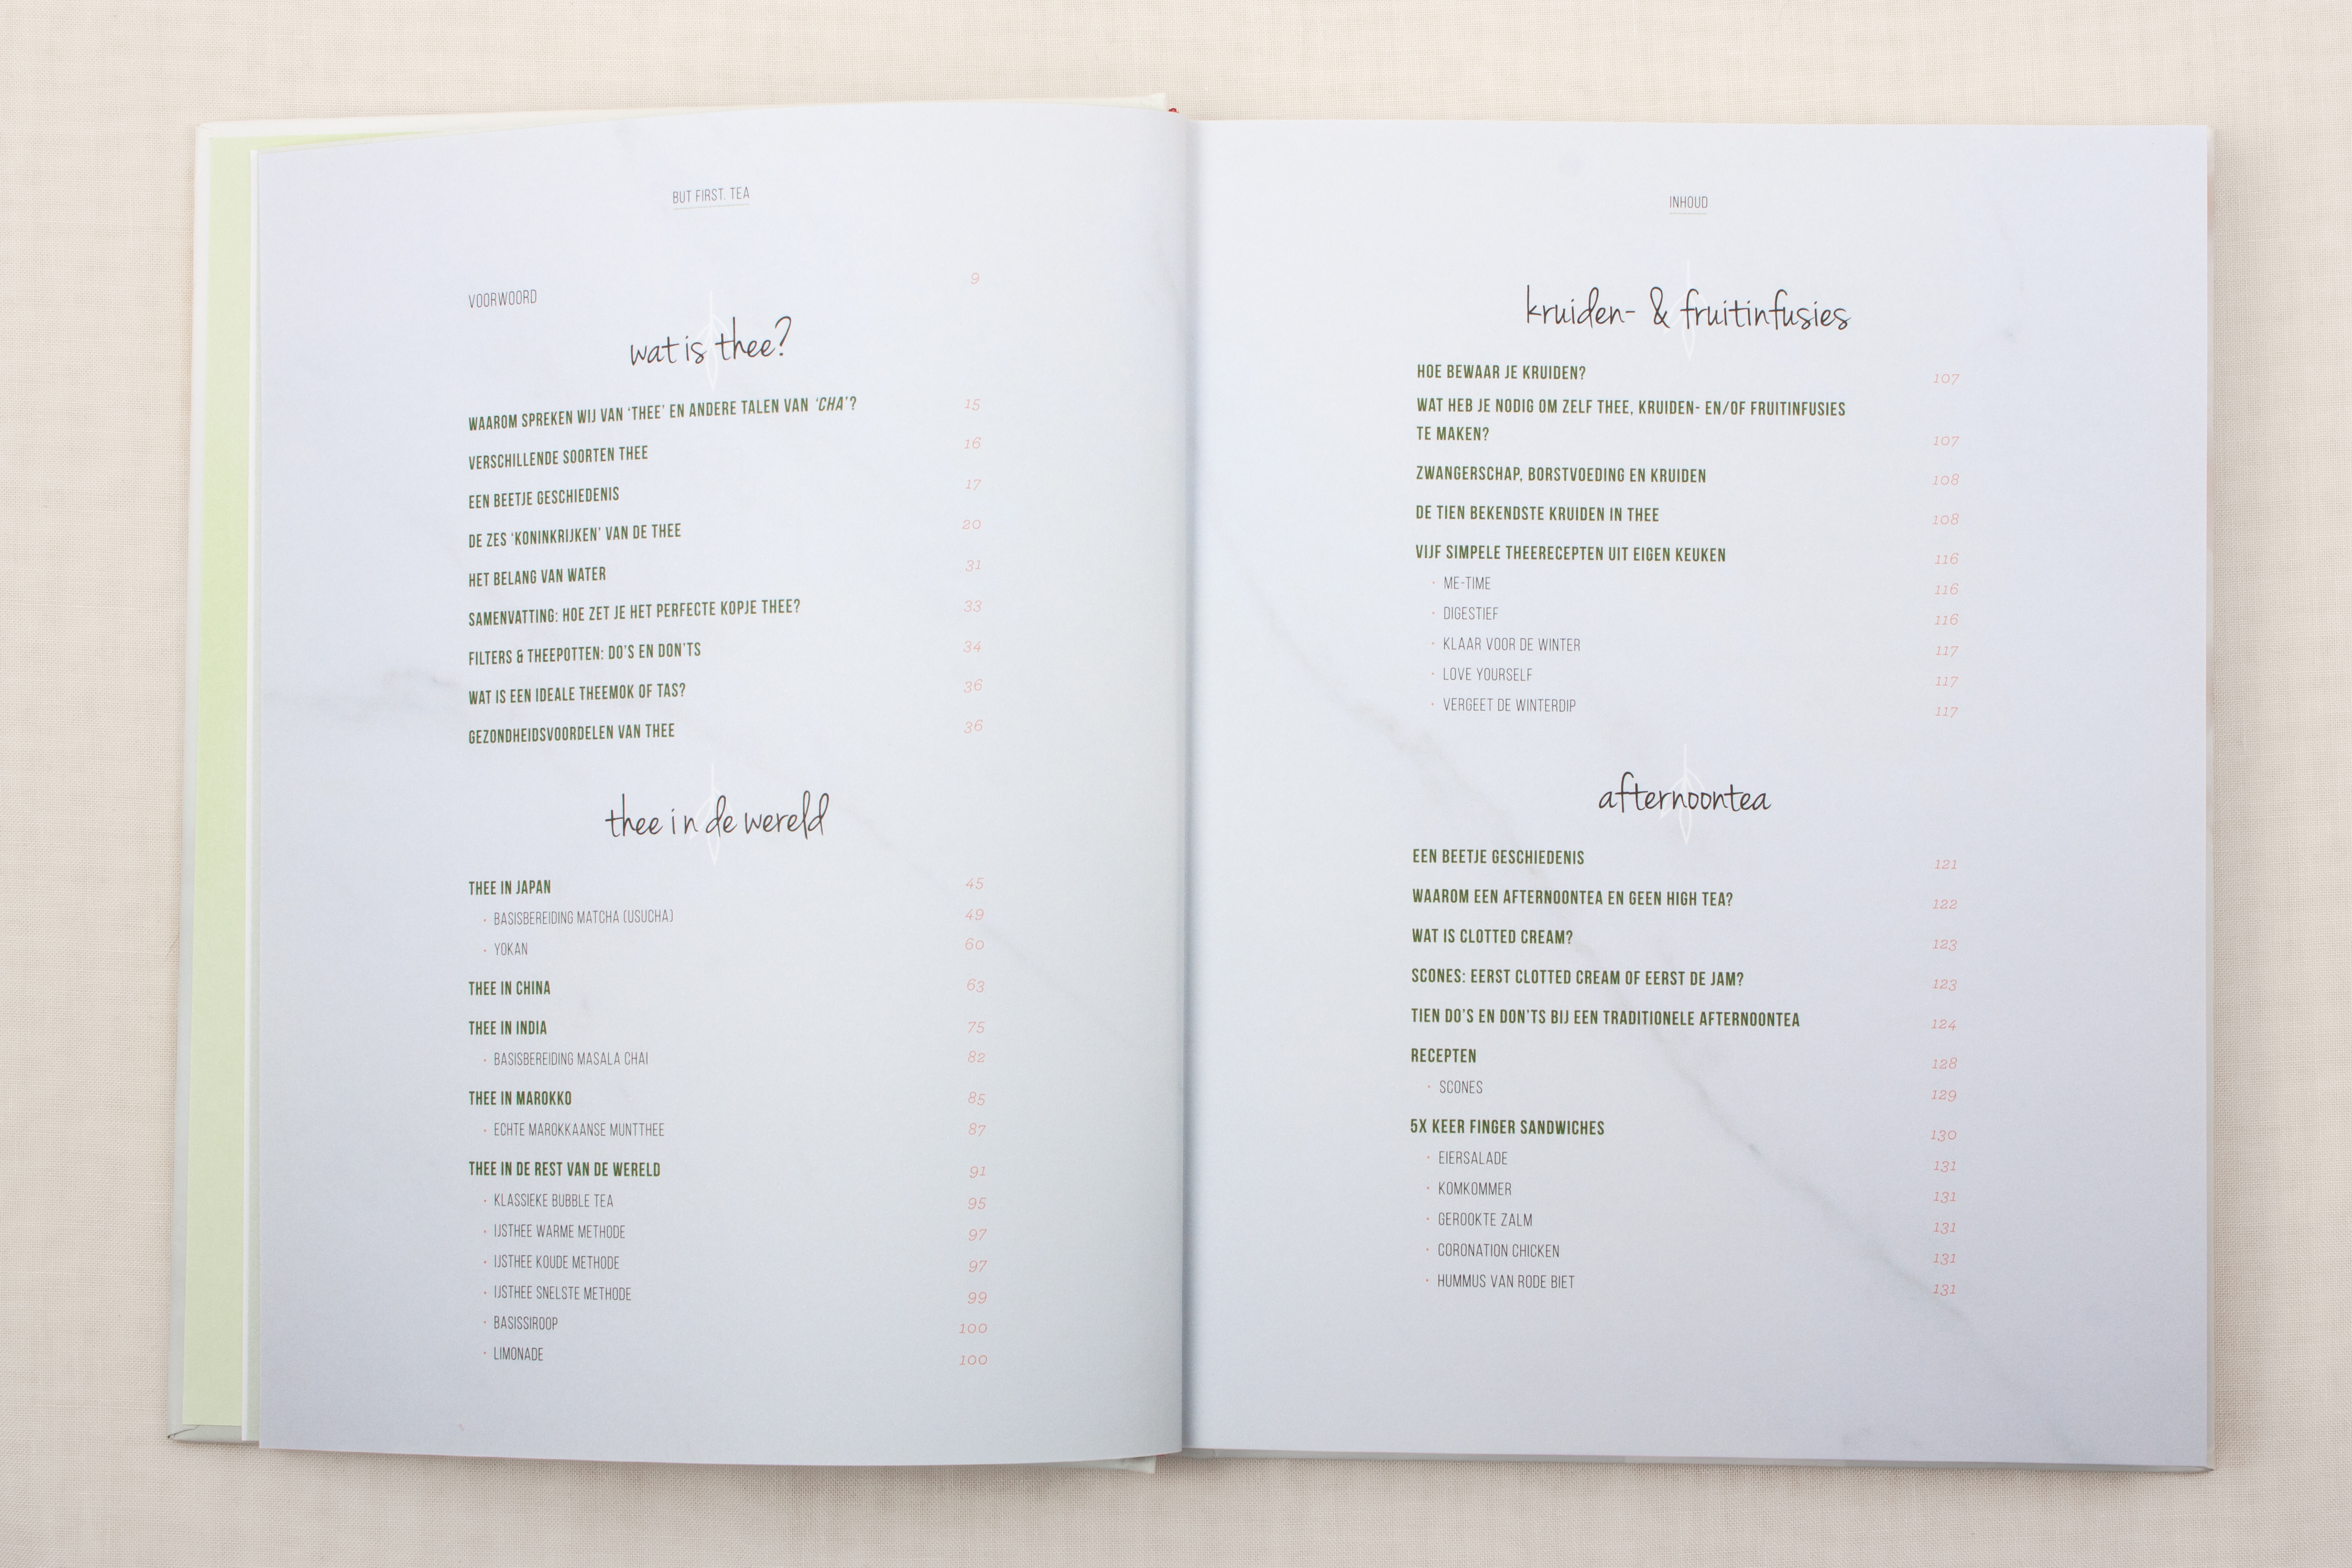 BUT FIRST. TEA
VOORWOORD 9
wat is thee?
WAAROM SPREKEN WIJ VAN ‘THEE’ EN ANDERE TALEN VAN ‘CHA’? 15
VERSCHILLENDE SOORTEN THEE 16
EEN BEETJE GESCHIEDENIS 17
DE ZES ‘KONINKRIJKEN’ VAN DE THEE 20
HET BELANG VAN WATER 31
SAMENVATTING: HOE ZET JE HET PERFECTE KOPJE THEE? 33
FILTERS & THEEPOTTEN: DO’S EN DON’TS 34
WAT IS EEN IDEALE THEEMOK OF TAS? 36
GEZONDHEIDSVOORDELEN VAN THEE 36
thee in de wereld
THEE IN JAPAN 45
· BASISBEREIDING MATCHA (USUCHA) 49
· YOKAN 60
THEE IN CHINA 63
THEE IN INDIA 75
· BASISBEREIDING MASALA CHAI 82
THEE IN MAROKKO 85
· ECHTE MAROKKAANSE MUNTTHEE 87
THEE IN DE REST VAN DE WERELD 91
· KLASSIEKE BUBBLE TEA 95
· IJSTHEE WARME METHODE 97
· IJSTHEE KOUDE METHODE 97
· IJSTHEE SNELSTE METHODE 99
· BASISSIROOP 100
· LIMONADE 100
INHOUD
kruiden- & fruitinfusies
HOE BEWAAR JE KRUIDEN? 107
WAT HEB JE NODIG OM ZELF THEE, KRUIDEN- EN/OF FRUITINFUSIES
TE MAKEN? 107
ZWANGERSCHAP, BORSTVOEDING EN KRUIDEN 108
DE TIEN BEKENDSTE KRUIDEN IN THEE 108
VIJF SIMPELE THEERECEPTEN UIT EIGEN KEUKEN 116
· ME-TIME 116
· DIGESTIEF 116
· KLAAR VOOR DE WINTER 117
· LOVE YOURSELF 117
· VERGEET DE WINTERDIP 117
afternoontea
EEN BEETJE GESCHIEDENIS 121
WAAROM EEN AFTERNOONTEA EN GEEN HIGH TEA? 122
WAT IS CLOTTED CREAM? 123
SCONES: EERST CLOTTED CREAM OF EERST DE JAM? 123
TIEN DO’S EN DON’TS BIJ EEN TRADITIONELE AFTERNOONTEA 124
RECEPTEN 128
· SCONES 129
5X KEER FINGER SANDWICHES 130
· EIERSALADE 131
· KOMKOMMER 131
· GEROOKTE ZALM 131
· CORONATION CHICKEN 131
· HUMMUS VAN RODE BIET 131